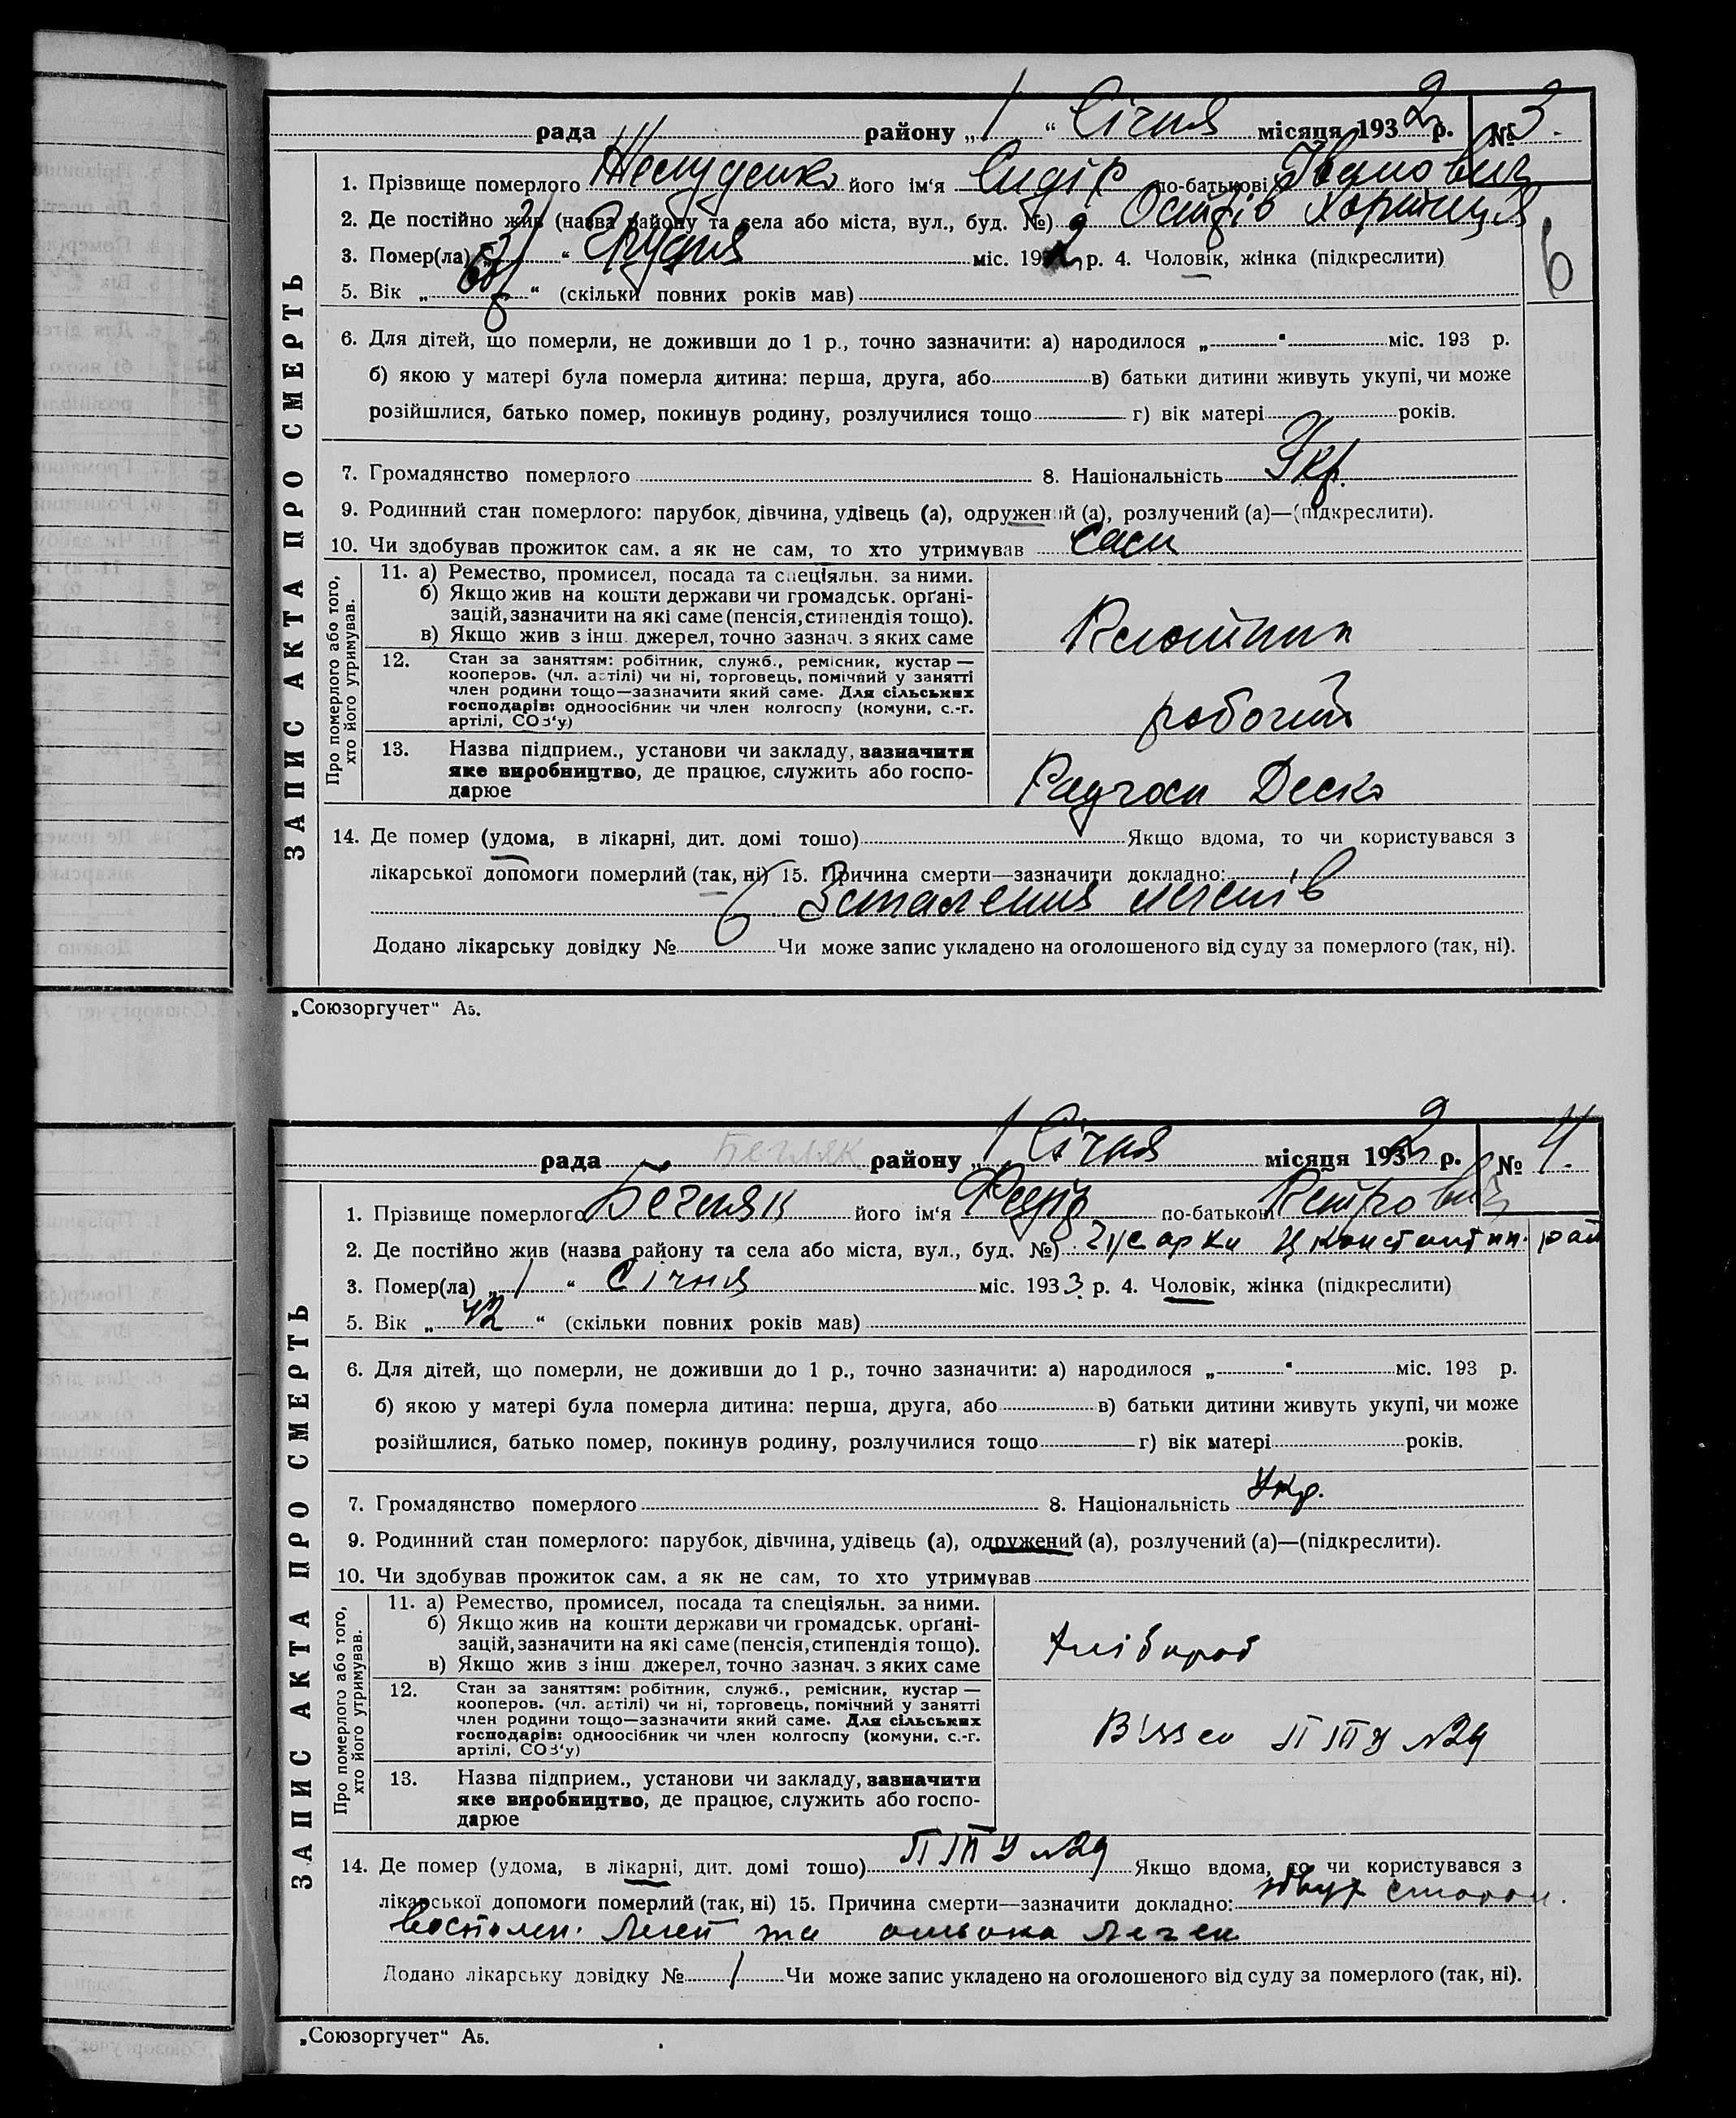 рада районy „ 1 “ Січня місяця 1932 р. № 3.
1. Прізвище померлого його ім‘я Сидір по-батькові Іванович
2. Де постійно жив (назва району та села або міста, вул., буд. №) Острів Хортиця
3. Помер(ла) „ 31 “ Грудня міс. 19 2 р. 4. Чоловік, жінка (підкреслити)
6
5. Вік „ “ (скільки повних років мав)
6. Для дітей, що померли, не доживши до 1 р., точно зазначити: а) народилося „ “ міс. 193 р.
б) якою у матері була померла дитина: перша, друга, або в) батьки дитини живуть укупі, чи може
розійшлися, батько помер, покинув родину, розлучилися тощо г) вік матері років.
7. Громадянство померлого 8. Національність Укр.
9. Родинний стан померлого: парубок, дівчина, удівець (а), одружений (а), розлучений (а)—(підкреслити).
10. Чи здобував прожиток сам. а як не сам, то хто утримував сам
ЗАПИС АКТА ПРО СМЕРТЬ
Про померлого або того, хто його утримував.
11. а) Ремество, промисел, посада та спеціяльн. за ними.
б) Якщо жив на кошти держави чи громадськ. орґані-
зацій, зазначити на які саме (пенсія, стипендія тощо).
в) Якщо жив з інш. джерел, точно зазнач. з яких саме
12. Стан за заняттям: робітник, служб., ремісник, кустар —
кооперов. (чл. артілі) чи ні, торговець, помічний у занятті
член родини тощо—зазначити який саме. Для сільських
господарів: одноосібник чи член колгоспу (комуни, с.-г.
артілі, СОЗ‘у)
робочий
13. Назва підприєм., установи чи закладу, зазначити
яке виробництво, де працює, служить або госпо-
дарює
14. Де помер (удома, в лікарні, дит. домі тошо) Якщо вдома, то чи користувався з
лікарської допомоги померлий (так, ні) 15. Причина смерти—зазначити докладно:
Запалення легенів
Додано лікарську довідку № 6 Чи може запис укладено на оголошеного від суду за померлого (так, ні).
„Союзоргучет“ А5.
рада Бегляк району „ 1 “ Січня місяця 1932 р. № 4.
1. Прізвище померлого Бегляк його ім‘я Федір по-батькові Петрович
2. Де постійно жив (назва району та села або міста, вул., буд. №) Гусарки Ц Константин. рай
3. Помер(ла) „ 1 “ Січня міс. 1933 р. 4. Чоловік, жінка (підкреслити)
5. Вік „ 42 “ (скільки повних років мав)
6. Для дітей, що померли, не доживши до 1 р., точно зазначити: а) народилося „ “ міс. 193 р.
б) якою у матері була померла дитина: перша, друга, або в) батьки дитини живуть укупі, чи може
розійшлися, батько помер, покинув родину, розлучилися тощо г) вік матері років.
7. Громадянство померлого 8. Національність Укр.
9. Родинний стан померлого: парубок, дівчина, удівець (а), одружений (а), розлучений (а)—(підкреслити).
10. Чи здобував прожиток сам. а як не сам, то хто утримував
ЗАПИС АКТА ПРО СМЕРТЬ
Про померлого або того, хто його утримував.
11. а) Ремество, промисел, посада та спеціяльн. за ними.
б) Якщо жив на кошти держави чи громадськ. орґані-
зацій, зазначити на які саме (пенсія, стипендія тощо).
в) Якщо жив з інш. джерел, точно зазнач. з яких саме
хлібороб
12. Стан за заняттям: робітник, служб., ремісник, кустар —
кооперов. (чл. артілі) чи ні, торговець, помічний у занятті
член родини тощо—зазначити який саме. Для сільських
господарів: одноосібник чи член колгоспу (комуни, с.-г.
артілі, СОЗ‘у)
ПТУ №29
13. Назва підприєм., установи чи закладу, зазначити
яке виробництво, де працює, служить або госпо-
дарює
14. Де помер (удома, в лікарні, дит. домі тошо) ПТУ №29 Якщо вдома, то чи користувався з
лікарської допомоги померлий (так, ні) 15. Причина смерти—зазначити докладно: двух сторон.
воспален. леген та легень
Додано лікарську довідку № 1 Чи може запис укладено на оголошеного від суду за померлого (так, ні).
„Союзоргучет“ А5.